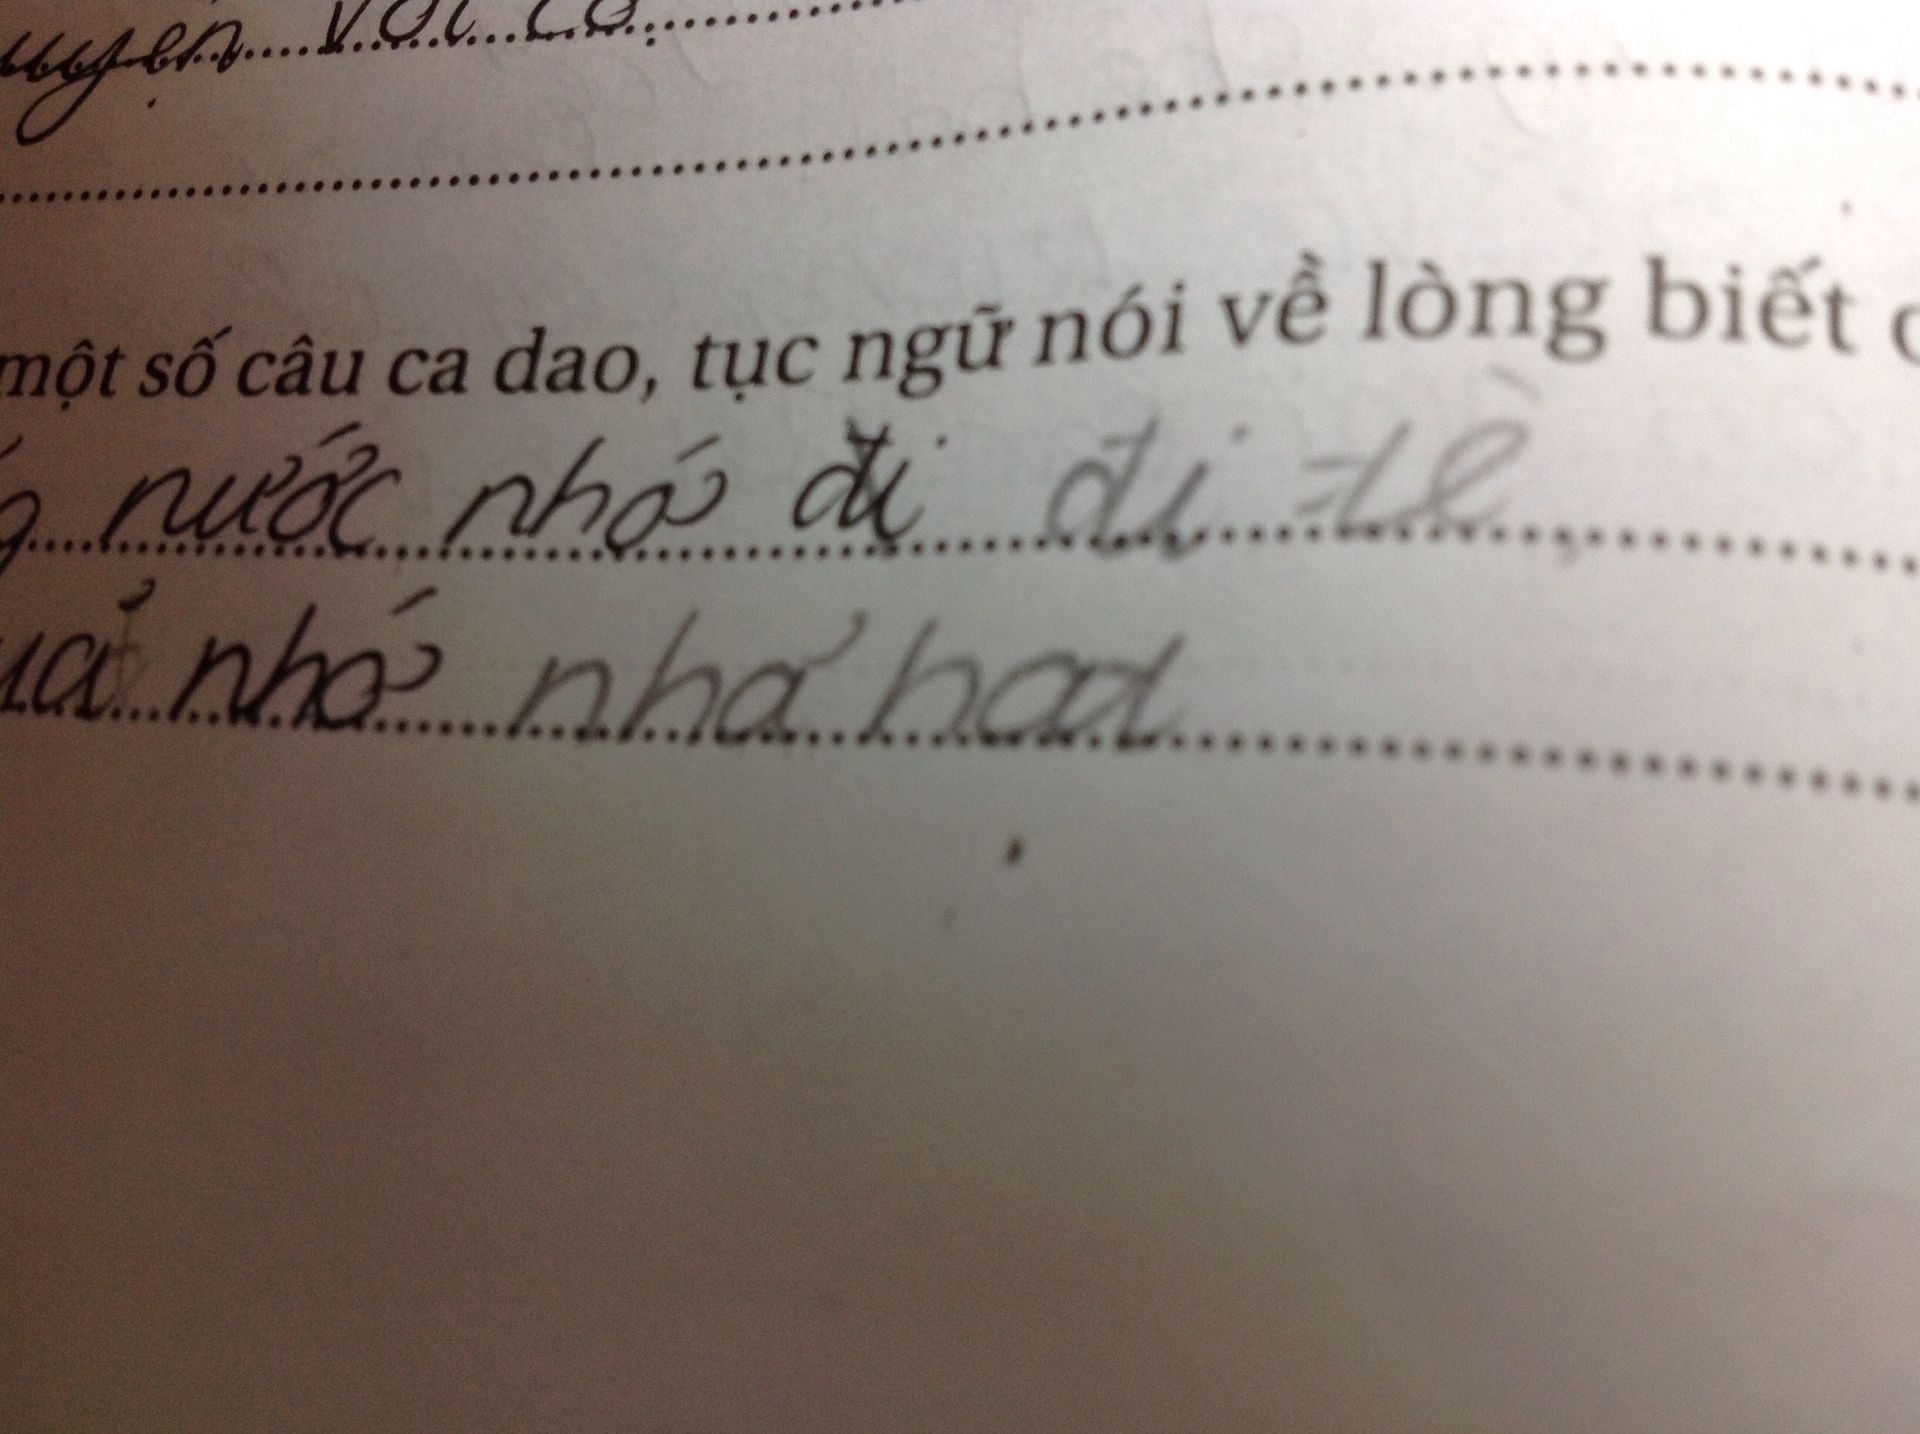 với cô.
một số câu ca dao, tục ngữ nói về lòng biết
nước nhớ đi đi tè
nhớ nhả hạt